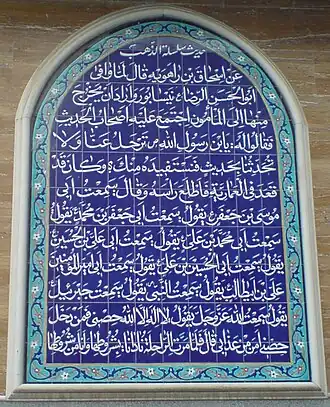 حدیث سلسلة الذهب
عن اسحاق بن راهويه قال لما وافى
ابو الحسن الرضا نيسابور واراد ان يخرج
منها الى المأمون اجتمع عليه اصحاب الحديث
فقالوا له يابن رسول الله ترحل عنا ولا
تحدثنا بحديث فنستفيده منك وكان قد
قعد فى العمارية فاطلع رأسه وقال سمعت ابى
موسى بن جعفر يقول سمعت ابى جعفر بن محمد يقول
سمعت ابى محمد بن على يقول سمعت ابى على بن الحسين
يقول سمعت ابى الحسين بن على يقول سمعت ابى امير المؤمنين
على بن ابيطالب يقول سمعت النبى يقول سمعت جبرئيل
يقول سمعت الله عز وجل يقول لا اله الا الله حصنى فمن دخل
حصنى امن من عذابى قال فلما مرت الراحلة نادانا بشروطها وانا من شروطها